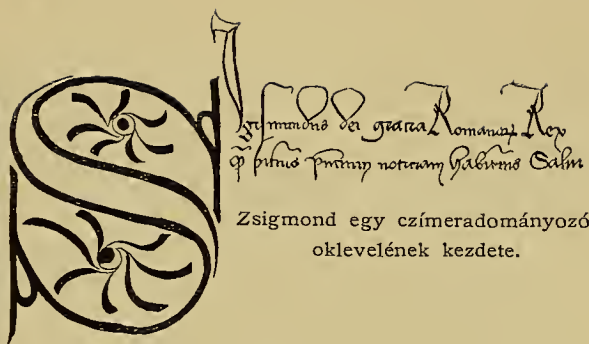 Sigismundus dei gracia Romanorum Rex
noticiam habituris Salut
Zsigmond egy czímeradományozó
oklevelének kezdete.